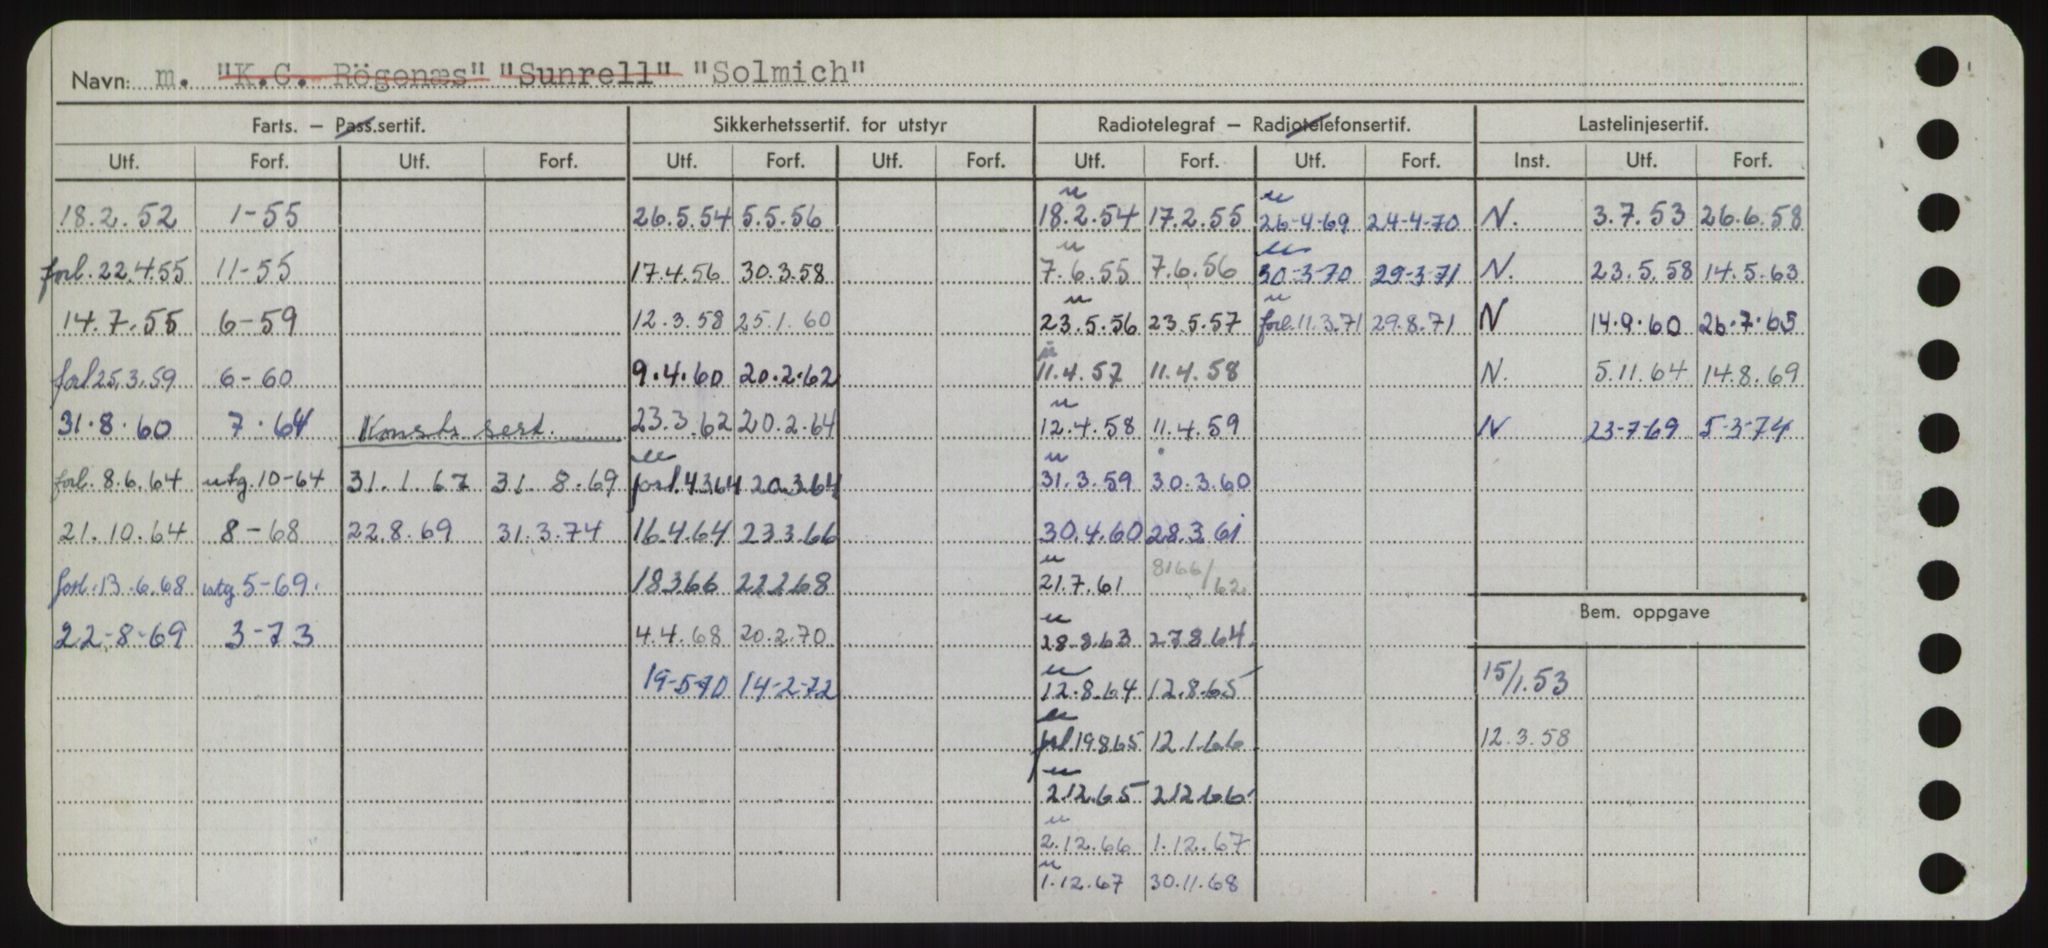 Navn: m. "K.C. Rögenæs" "Sunrell" "Solmich"
Farts. – Pass.sertif. Sikkerhetssertif. for utstyr Radiotelegraf – Radiotelefonsertif. Lastelinjesertif.
Utf. Forf. Utf. Forf. Utf. Forf. Utf. Forf. Utf. Forf. Utf. Forf. Inst. Utf. Forf.
u u
18.2.52 1-55 26.5.54 5.5.56 18.2.54 17.2.55 26-4-69 24-4-70 N. 3.7.53 26.6.58
u u
forl. 22.4.55 11-55 17.4.56 30.3.58 7.6.55 7.6.56 30-3-70 29-3-71 N. 23.5.58 14.5.63
u u
14.7.55 6-59 12.3.58 25.1.60 23.5.56 23.5.57 forl. 11.3.71 29.8.71 N 14.9.60 26.7.65
u
forl 25.3.59 6-60 9.4.60 20.2.62 11.4.57 11.4.58 N. 5.11.64 14.8.69
u
31.8.60 7.64 Konstr. sert. 23.3.62 20.2.64 12.4.58 11.4.59 N 23-7-69 5-3-74
u u
forl. 8.6.64 utg. 10-64 31.1.67 31.8.69 forl. 4364 20.3.64 31.3.59 30.3.60
21.10.64 8-68 22.8.69 31.3.74 16.4.64 23366 30.4.60 28.3.61
u
forl. 13.6.68 utg 5-69. 18366 22268 21.7.61 8166/62
Bem. oppgave
u
22-8-69 3-73 4.4.68 20.2.70 28.8.63 27.8.64
u
19-5-70 14-2-72 12.8.64 12.8.65 15/1.53
u
forl 19865 12.1.66 12.3.58
u
2.12.65 2.12.66
u
2.12.66 1.12.67
u
1.12.67 30.11.68